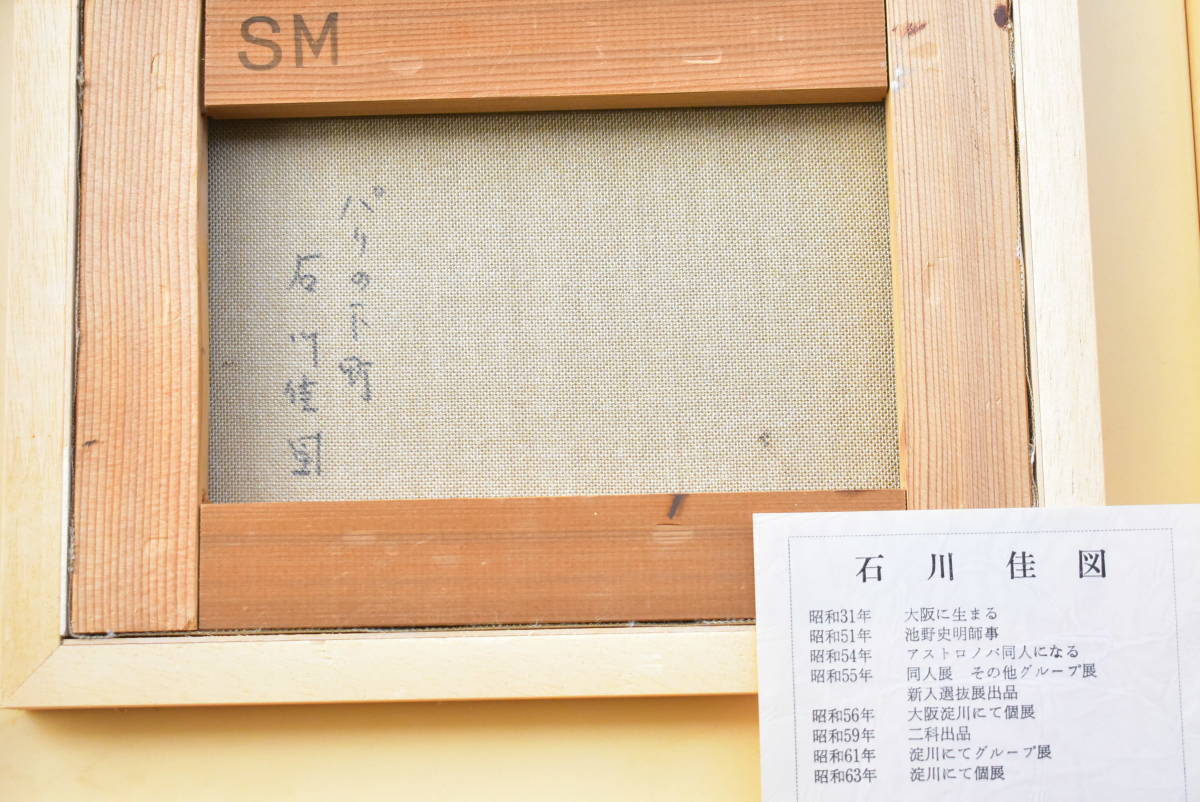 SM
パリの下町
石川佳図
石川佳図
昭和31年 大阪に生まる
昭和51年 池野史明師事
昭和54年 アストロノバ同人になる
昭和55年 同人展 その他グループ展
新入選抜展出品
昭和56年 大阪淀川にて個展
昭和59年 二科出品
昭和61年 淀川にてグループ展
昭和63年 淀川にて個展